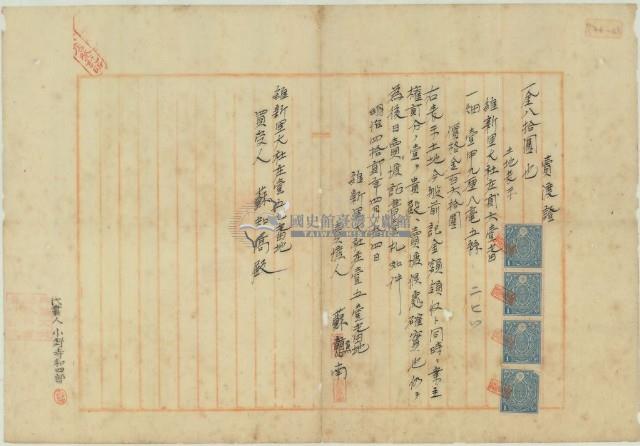 賣渡證
一金八拾圓也
土地表示
維新里大社庄貳六壹番
一畑 壹甲九厘八毫五絲
價格金百六拾圓
右表示土地今般前記金額領収ト同時ニ業主
權貳分ノ壹ヲ貴殿ニ賣渡候處確實也仍テ
為後日賣渡証書一札如件
明治四拾貳年四月 四日
維新里大社庄壹五壹番地
賣渡人 蘇 南
維新里大社庄壹五 番地
買受人 蘇 殿
代書人 小野寺和四郎
國史館臺灣文獻館
TAIWAN HISTORICA